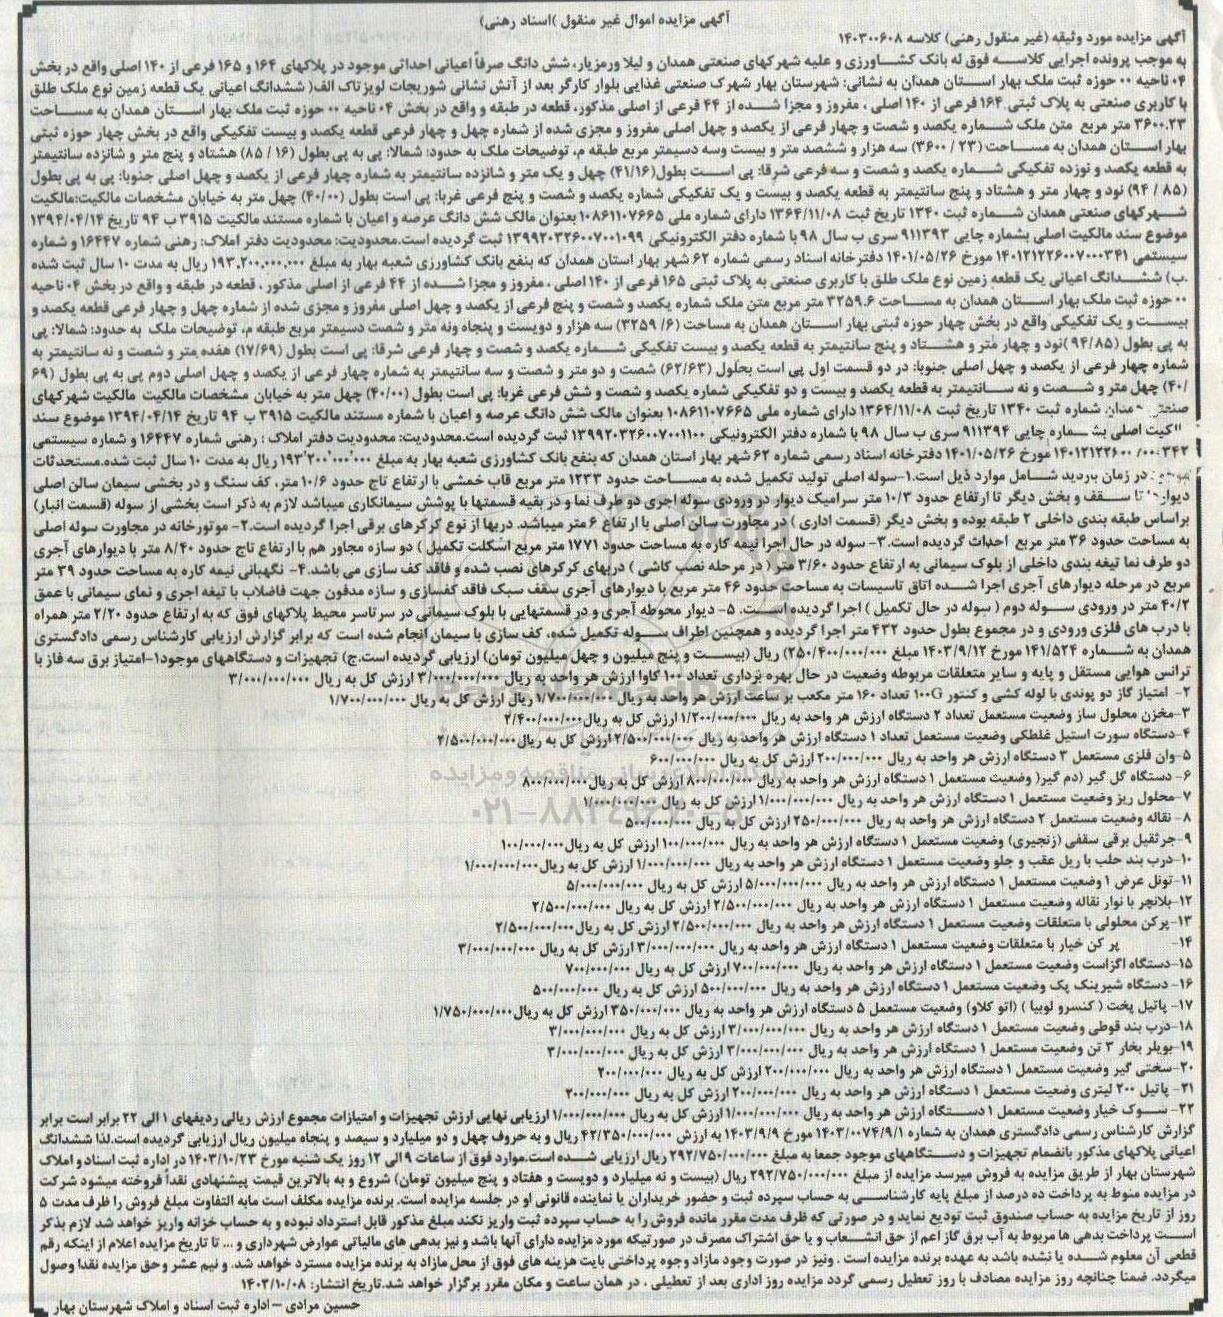 آگهی مزایده اموال غیر منقول )اسناد رهنی)
آگهی مزایده مورد وثیقه (غیر منقول رهنی) کلاسه ۱۴۰۳۰۰۶۰۸
به موجب پرونده اجرایی کلاسه فوق له بانک کشاورزی و علیه شهرکهای صنعتی همدان و لیلا ورمزیار، شش دانگ صرفاً اعیانی احداثی موجود در پلاکهای ۱۶۴ و ۱۶۵ فرعی از ۱۴۰ اصلی واقع در بخش
۰۴ ناحیه ۰۰ حوزه ثبت ملک بهار استان همدان به نشانی: شهرستان بهار شهرک صنعتی غذایی بلوار کارگر بعد از آتش نشانی شوریجات لویزتاک الف( ششدانگ اعیانی یک قطعه زمین نوع ملک طلق
با کاربری صنعتی به پلاک ثبتی ۱۶۴ فرعی از ۱۴۰ اصلی ، مفروز و مجزا شده از ۴۴ فرعی از اصلی مذکور، قطعه در طبقه و واقع در بخش ۰۴ ناحیه ۰۰ حوزه ثبت ملک بهار استان همدان به مساحت
۳۶۰۰.۲۳ متر مربع متن ملک شماره یکصد و شصت و چهار فرعی از یکصد و چهل اصلی مفروز و مجزی شده از شماره چهل و چهار فرعی قطعه یکصد و بیست تفکیکی واقع در بخش چهار حوزه ثبتی
بهار استان همدان به مساحت (۲۳ / ۳۶۰۰) سه هزار و ششصد متر و بیست وسه دسیمتر مربع طبقه م، توضیحات ملک به حدود: شمالا: پی به پی بطول (۱۶ / ۸۵) هشتاد و پنج متر و شانزده سانتیمتر
به قطعه یکصد و نوزده تفکیکی شماره یکصد و شصت و سه فرعی شرقا: پی است بطول(۴۱/۱۶) چهل و یک متر و شانزده سانتیمتر به شماره چهار فرعی از یکصد و چهل اصلی جنوبا: پی به پی بطول
(۸۵ / ۹۴) نود و چهار متر و هشتاد و پنج سانتیمتر به قطعه یکصد و بیست و یک تفکیکی شماره یکصد و شصت و پنج فرعی غربا: پی است بطول (۴۰/۰۰) چهل متر به خیابان مشخصات مالکیت:مالکیت
شهرکهای صنعتی همدان شماره ثبت ۱۳۴۰ تاریخ ثبت ۱۳۶۴/۱۱/۰۸ دارای شماره ملی ۱۰۸۶۱۱۰۷۶۶۵ بعنوان مالک شش دانگ عرصه و اعیان با شماره مستند مالکیت ۳۹۱۵ ب ۹۴ تاریخ ۱۳۹۴/۰۴/۱۴
موضوع سند مالکیت اصلی بشماره چاپی ۹۱۱۳۹۳ سری ب سال ۹۸ با شماره دفتر الکترونیکی ۱۳۹۹۲۰۳۲۶۰۰۷۰۰۱۰۹۹ ثبت گردیده است.محدودیت: محدودیت دفتر املاک: رهنی شماره ۱۶۴۴۷ و شماره
سیستمی ۱۴۰۱۲۱۲۲۶۰۰۷۰۰۰۳۴۱ مورخ ۱۴۰۱/۰۵/۲۶ دفترخانه اسناد رسمی شماره ۶۲ شهر بهار استان همدان که بنفع بانک کشاورزی شعبه بهار به مبلغ ۱۹۳,۲۰۰,۰۰۰,۰۰۰ ریال به مدت ۱۰ سال ثبت شده
.ب) ششدانگ اعیانی یک قطعه زمین نوع ملک طلق با کاربری صنعتی به پلاک ثبتی ۱۶۵ فرعی از ۱۴۰ اصلی ، مفروز و مجزا شده از ۴۴ فرعی از اصلی مذکور ، قطعه در طبقه و واقع در بخش ۰۴ ناحیه
۰۰ حوزه ثبت ملک بهار استان همدان به مساحت ۳۲۵۹.۶ متر مربع متن ملک شماره یکصد و شصت و پنج فرعی از یکصد و چهل اصلی مفروز و مجزی شده از شماره چهل و چهار فرعی قطعه یکصد و
بیست و یک تفکیکی واقع در بخش چهار حوزه ثبتی بهار استان همدان به مساحت (۶/ ۳۲۵۹) سه هزار و دویست و پنجاه ونه متر و شصت دسیمتر مربع طبقه م، توضیحات ملک به حدود: شمالا: پی
به پی بطول (۹۴/۸۵ )نود و چهار متر و هشتاد و پنج سانتیمتر به قطعه یکصد و بیست تفکیکی شماره یکصد و شصت و چهار فرعی شرقا: پی است بطول (۱۷/۶۹) هفده متر و شصت و نه سانتیمتر به
شماره چهار فرعی از یکصد و چهل اصلی جنوبا: در دو قسمت اول پی است بطول (۶۲/۶۳) شصت و دو متر و شصت و سه سانتیمتر به شماره چهار فرعی از یکصد و چهل اصلی دوم پی به پی بطول (۶۹
/۴۰) چهل متر و شصت و نه سانتیمتر به قطعه یکصد و بیست و دو تفکیکی شماره یکصد و شصت و شش فرعی غربا: پی است بطول (۴۰/۰۰) چهل متر به خیابان مشخصات مالکیت مالکیت شهرکهای
صنعتی همدان شماره ثبت ۱۳۴۰ تاریخ ثبت ۱۳۶۴/۱۱/۰۸ دارای شماره ملی ۱۰۸۶۱۱۰۷۶۶۵ بعنوان مالک شش دانگ عرصه و اعیان با شماره مستند مالکیت ۳۹۱۵ ب ۹۴ تاریخ ۱۳۹۴/۰۴/۱۴ موضوع سند
اصلی بشماره چاپی ۹۱۱۳۹۴ سری ب سال ۹۸ با شماره دفتر الکترونیکی ۱۳۹۹۲۰۳۲۶۰۰۷۰۰۱۱۰۰ ثبت گردیده است.محدودیت: محدودیت دفتر املاک : رهنی شماره ۱۶۴۴۷ و شماره سیستمی
مورخ ۱۴۰۱/۰۵/۲۶ دفترخانه اسناد رسمی شماره ۶۲ شهر بهار استان همدان که بنفع بانک کشاورزی شعبه بهار به مبلغ ۱۹۳٬۲۰۰٬۰۰۰٬۰۰۰ ریال به مدت ۱۰ سال ثبت شده.مستحدثات
در زمان بازدید شامل موارد ذیل است.۱-سوله اصلی تولید تکمیل شده به مساحت حدود ۱۲۳۳ متر مربع قاب خمشی با ارتفاع تاج حدود ۱۰/۶ متر، کف سنگ و در بخشی سیمان سالن اصلی
تا سقف و بخش دیگر تا ارتفاع حدود ۱۰/۳ متر سرامیک دیوار در ورودی سوله اجری دو طرف نما و در بقیه قسمتها با پوشش سیمانکاری میباشد لازم به ذکر است بخشی از سوله (قسمت انبار)
براساس طبقه بندی داخلی ۲ طبقه بوده و بخش دیگر (قسمت اداری ) در مجاورت سالن اصلی با ارتفاع ۶ متر میباشد. دربها از نوع کرکرهای برقی اجرا گردیده است.۲- موتورخانه در مجاورت سوله اصلی
به مساحت حدود ۳۶ متر مربع احداث گردیده است.۳- سوله در حال اجرا نیمه کاره به مساحت حدود ۱۷۷۱ متر مربع اسکلت تکمیل ) دو سازه مجاور هم با ارتفاع تاج حدود ۸/۴۰ متر با دیوارهای آجری
دو طرف نما تیغه بندی داخلی از بلوک سیمانی به ارتفاع حدود ۳/۶۰ متر ( در مرحله نصب کاشی ) دربهای کرکرهای نصب شده و فاقد کف سازی می باشد.۴- نگهبانی نیمه کاره به مساحت حدود ۳۹ متر
مربع در مرحله دیوارهای آجری اجرا شده اتاق تاسیسات به مساحت حدود ۴۶ متر مربع با دیوارهای آجری سقف سبک فاقد کفسازی و سازه مدفون جهت فاضلاب با تیغه اجری و نمای سیمانی با عمق
۴۰/۲ متر در ورودی سوله دوم ( سوله در حال تکمیل ) اجرا گردیده است. ۵- دیوار محوطه آجری و در قسمتهایی با بلوک سیمانی در سرتاسر محیط پلاکهای فوق که به ارتفاع حدود ۲/۲۰ متر همراه
با درب های فلزی ورودی و در مجموع بطول حدود ۴۳۲ متر اجرا گردیده و همچنین اطراف سوله تکمیل شده، کف سازی با سیمان انجام شده است که برابر گزارش ارزیابی کارشناس رسمی دادگستری
همدان به شماره ۱۴۱/۵۲۴ مورخ ۱۴۰۳/۹/۱۲ مبلغ ۲۵۰/۴۰۰/۰۰۰/۰۰۰) ریال (بیست و پنج میلیون و چهل میلیون تومان) ارزیابی گردیده است.ج) تجهیزات و دستگاههای موجود۱-امتیاز برق سه فاز با
ترانس هوایی مستقل و پایه و سایر متعلقات مربوطه وضعیت در حال بهره برداری تعداد ۱۰۰ کاوا ارزش هر واحد به ریال ۳/۰۰۰/۰۰۰/۰۰۰ ارزش کل به ریال ۳/۰۰۰/۰۰۰/۰۰۰
۲- امتیاز گاز دو پوندی با لوله کشی و کنتور ۱۰۰G تعداد ۱۶۰ متر مکعب بر ساعت ارزش هر واحد به ریال ۱/۷۰۰/۰۰۰/۰۰۰ ریال ارزش کل به ریال ۱/۷۰۰/۰۰۰/۰۰۰
۳-مخزن محلول ساز وضعیت مستعمل تعداد ۲ دستگاه ارزش هر واحد به ریال ۱/۲۰۰/۰۰۰/۰۰۰ ارزش کل به ریال۲/۴۰۰/۰۰۰/۰۰۰
۴-دستگاه سورت استیل غلطکی وضعیت مستعمل تعداد ۱ دستگاه ارزش هر واحد به ریال ۲/۵۰۰/۰۰۰/۰۰۰ ارزش کل به ریال۲/۵۰۰/۰۰۰/۰۰۰
۵-وان فلزی مستعمل ۳ دستگاه ارزش هر واحد به ریال ۲۰۰/۰۰۰/۰۰۰ ارزش کل به ریال ۶۰۰/۰۰۰/۰۰۰
۶- دستگاه گل گیر (دم گیر( وضعیت مستعمل ۱ دستگاه ارزش هر واحد به ریال ۸۰۰/۰۰۰/۰۰۰ ارزش کل به ریال۸۰۰/۰۰۰/۰۰۰
۷-محلول ریز وضعیت مستعمل ۱ دستگاه ارزش هر واحد به ریال ۱/۰۰۰/۰۰۰/۰۰۰ ارزش کل به ریال ۱/۰۰۰/۰۰۰/۰۰۰
۸- نقاله وضعیت مستعمل ۲ دستگاه ارزش هر واحد به ریال ۲۵۰/۰۰۰/۰۰۰ ارزش کل به ریال ۵۰۰/۰۰۰/۰۰۰
۹-جرثقیل برقی سقفی (زنجیری) وضعیت مستعمل ۱ دستگاه ارزش هر واحد به ریال ۱۰۰/۰۰۰/۰۰۰ ارزش کل به ریال۱۰۰/۰۰۰/۰۰۰
۱۰-درب بند حلب با ریل عقب و جلو وضعیت مستعمل ۱ دستگاه ارزش هر واحد به ریال ۱/۰۰۰/۰۰۰/۰۰۰ ارزش کل به ریال۱/۰۰۰/۰۰۰/۰۰۰
۱۱-تونل عرض ۱ وضعیت مستعمل ۱ دستگاه ارزش هر واحد به ریال ۵/۰۰۰/۰۰۰/۰۰۰ ارزش کل به ریال ۵/۰۰۰/۰۰۰/۰۰۰
۱۲-بلانچر با نوار نقاله وضعیت مستعمل ۱ دستگاه ارزش هر واحد به ریال ۲/۵۰۰/۰۰۰/۰۰۰ ارزش کل به ریال ۲/۵۰۰/۰۰۰/۰۰۰
۱۳-پرکن محلولی با متعلقات وضعیت مستعمل ۱ دستگاه ارزش هر واحد به ریال ۲/۵۰۰/۰۰۰/۰۰۰ ارزش کل به ریال۲/۵۰۰/۰۰۰/۰۰۰
۱۴- پر کن خیار با متعلقات وضعیت مستعمل ۱ دستگاه ارزش هر واحد به ریال ۳/۰۰۰/۰۰۰/۰۰۰ ارزش کل به ریال ۳/۰۰۰/۰۰۰/۰۰۰
۱۵-دستگاه اگزاست وضعیت مستعمل ۱ دستگاه ارزش هر واحد به ریال ۷۰۰/۰۰۰/۰۰۰ ارزش کل به ریال ۷۰۰/۰۰۰/۰۰۰
۱۶- دستگاه شیرینک پک وضعیت مستعمل ۱ دستگاه ارزش هر واحد به ریال ۵۰۰/۰۰۰/۰۰۰ ارزش کل به ریال ۵۰۰/۰۰۰/۰۰۰
۱۷- پاتیل پخت ( کنسرو لوبیا ) (اتو کلاو) وضعیت مستعمل ۵ دستگاه ارزش هر واحد به ریال ۳۵۰/۰۰۰/۰۰۰ ارزش کل به ریال۱/۷۵۰/۰۰۰/۰۰۰
۱۸-درب بند قوطی وضعیت مستعمل ۱ دستگاه ارزش هر واحد به ریال ۳/۰۰۰/۰۰۰/۰۰۰ ارزش کل به ریال ۳/۰۰۰/۰۰۰/۰۰۰
۱۹-بویلر بخار ۳ تن وضعیت مستعمل ۱ دستگاه ارزش هر واحد به ریال ۳/۰۰۰/۰۰۰/۰۰۰ ارزش کل به ریال ۳/۰۰۰/۰۰۰/۰۰۰
۲۰-سختی گیر وضعیت مستعمل ۱ دستگاه ارزش هر واحد به ریال ۲۰۰/۰۰۰/۰۰۰ ارزش کل به ریال ۲۰۰/۰۰۰/۰۰۰
۲۱- پاتیل ۲۰۰ لیتری وضعیت مستعمل ۱ دستگاه ارزش هر واحد به ریال ۲۰۰/۰۰۰/۰۰۰ ارزش کل به ریال ۲۰۰/۰۰۰/۰۰۰
۲۲- سوک خیار وضعیت مستعمل ۱ دستگاه ارزش هر واحد به ریال ۱/۰۰۰/۰۰۰/۰۰۰ ارزش کل به ریال ۱/۰۰۰/۰۰۰/۰۰۰ ارزیابی نهایی ارزش تجهیزات و امتیازات مجموع ارزش ریالی ردیفهای ۱ الی ۲۲ برابر است برابر
گزارش کارشناس رسمی دادگستری همدان به شماره ۱۴۰۳/۰۰۷۴/۹/۱ مورخ ۱۴۰۳/۹/۹ به ارزش ۴۲/۳۵۰/۰۰۰/۰۰۰ ریال و به حروف چهل و دو میلیارد و سیصد و پنجاه میلیون ریال ارزیابی گردیده است.لذا ششدانگ
اعیانی پلاکهای مذکور بانضمام تجهیزات و دستگاههای موجود جمعا به مبلغ ۲۹۲/۷۵۰/۰۰۰/۰۰۰ ریال ارزیابی شده است.موارد فوق از ساعات ۹ الی ۱۲ روز یک شنبه مورخ ۱۴۰۳/۱۰/۲۳ در اداره ثبت اسناد و املاک
شهرستان بهار از طریق مزایده به فروش میرسد مزایده از مبلغ ۲۹۲/۷۵۰/۰۰۰/۰۰۰ ریال (بیست و نه میلیارد و دویست و هفتاد و پنج میلیون تومان) شروع و به بالاترین قیمت پیشنهادی نقداً فروخته میشود شرکت
در مزایده منوط به پرداخت ده درصد از مبلغ پایه کارشناسی به حساب سپرده ثبت و حضور خریداران یا نماینده قانونی او در جلسه مزایده است. برنده مزایده مکلف است مابه التفاوت مبلغ فروش را ظرف مدت ۵
روز از تاریخ مزایده به حساب صندوق ثبت تودیع نماید و در صورتی که ظرف مدت مقرر مانده فروش را به حساب سپرده ثبت واریز نکند مبلغ مذکور قابل استرداد نبوده و به حساب خزانه واریز خواهد شد لازم بذکر
است پرداخت بدهی ها مربوط به آب برق گاز اعم از حق انشعاب و یا حق اشتراک مصرف در صورتیکه مورد مزایده دارای آنها باشد و نیز بدهی های مالیاتی عوارض شهرداری و ... تا تاریخ مزایده اعلام از اینکه رقم
قطعی آن معلوم شده یا نشده باشد به عهده برنده مزایده است . ونیز در صورت وجود مازاد وجوه پرداختی بابت هزینه های فوق از محل مازاد به برنده مزایده مسترد خواهد شد. و نیم عشر وحق مزایده نقدا وصول
میگردد. ضمنا چنانچه روز مزایده مصادف با روز تعطیل رسمی گردد مزایده روز اداری بعد از تعطیلی ، در همان ساعت و مکان مقرر برگزار خواهد شد.تاریخ انتشار: ۱۴۰۳/۱۰/۰۸
حسین مرادی – اداره ثبت اسناد و املاک شهرستان بهار